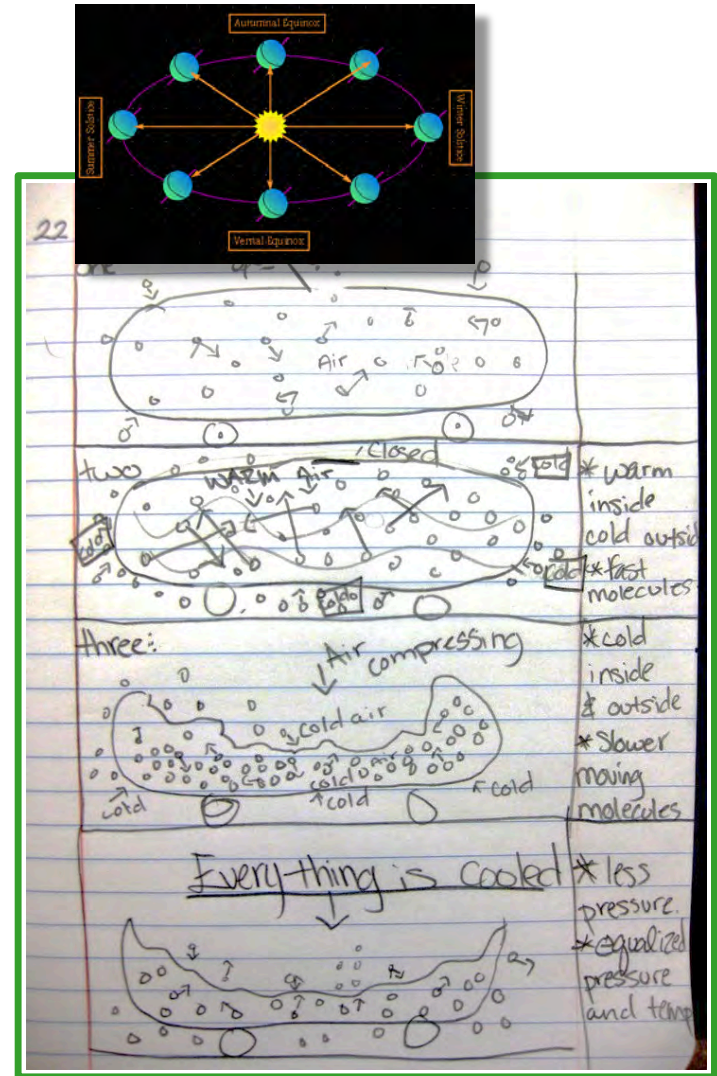 Autumnal Equinox
Summer Solstice
Winter Solstice
Vernal Equinox
22
one
Air
two
closed
WARM Air
cold
cold
cold
cold
* warm
inside
cold outside
* fast
molecules
three:
Air
compressing
cold air
cold air
cold
cold
cold
* cold
inside
& outside
* Slower
moving
molecules
Everything is cooled
* less
pressure.
* equalized
pressure
and temp